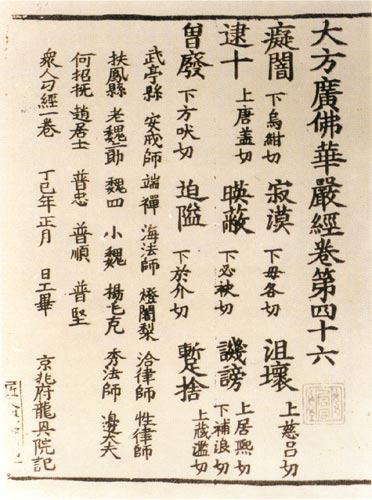 大方廣佛華嚴經卷第四十六
癡闇 下烏紺切 寂漠 下毋各切 沮壞 上慈呂切
逮十 上唐盖切 暎蔽 下必袂切 譏謗 上居熙切 下補浪切
曽廢 下方吠切 迫隘 下於介切 蹔捨 上蔵濫切
武亭縣 安戒師 端禪 海法師 燈闍梨 洽律師 性律師
扶鳳縣 老魏二郎 魏四 小魏 楊毛克 秀法師 邊大夫
何招撫 趙居士 普忠 普順 普堅
衆人刁經一卷 丁巳年正月 日工畢 京兆府龍興院記